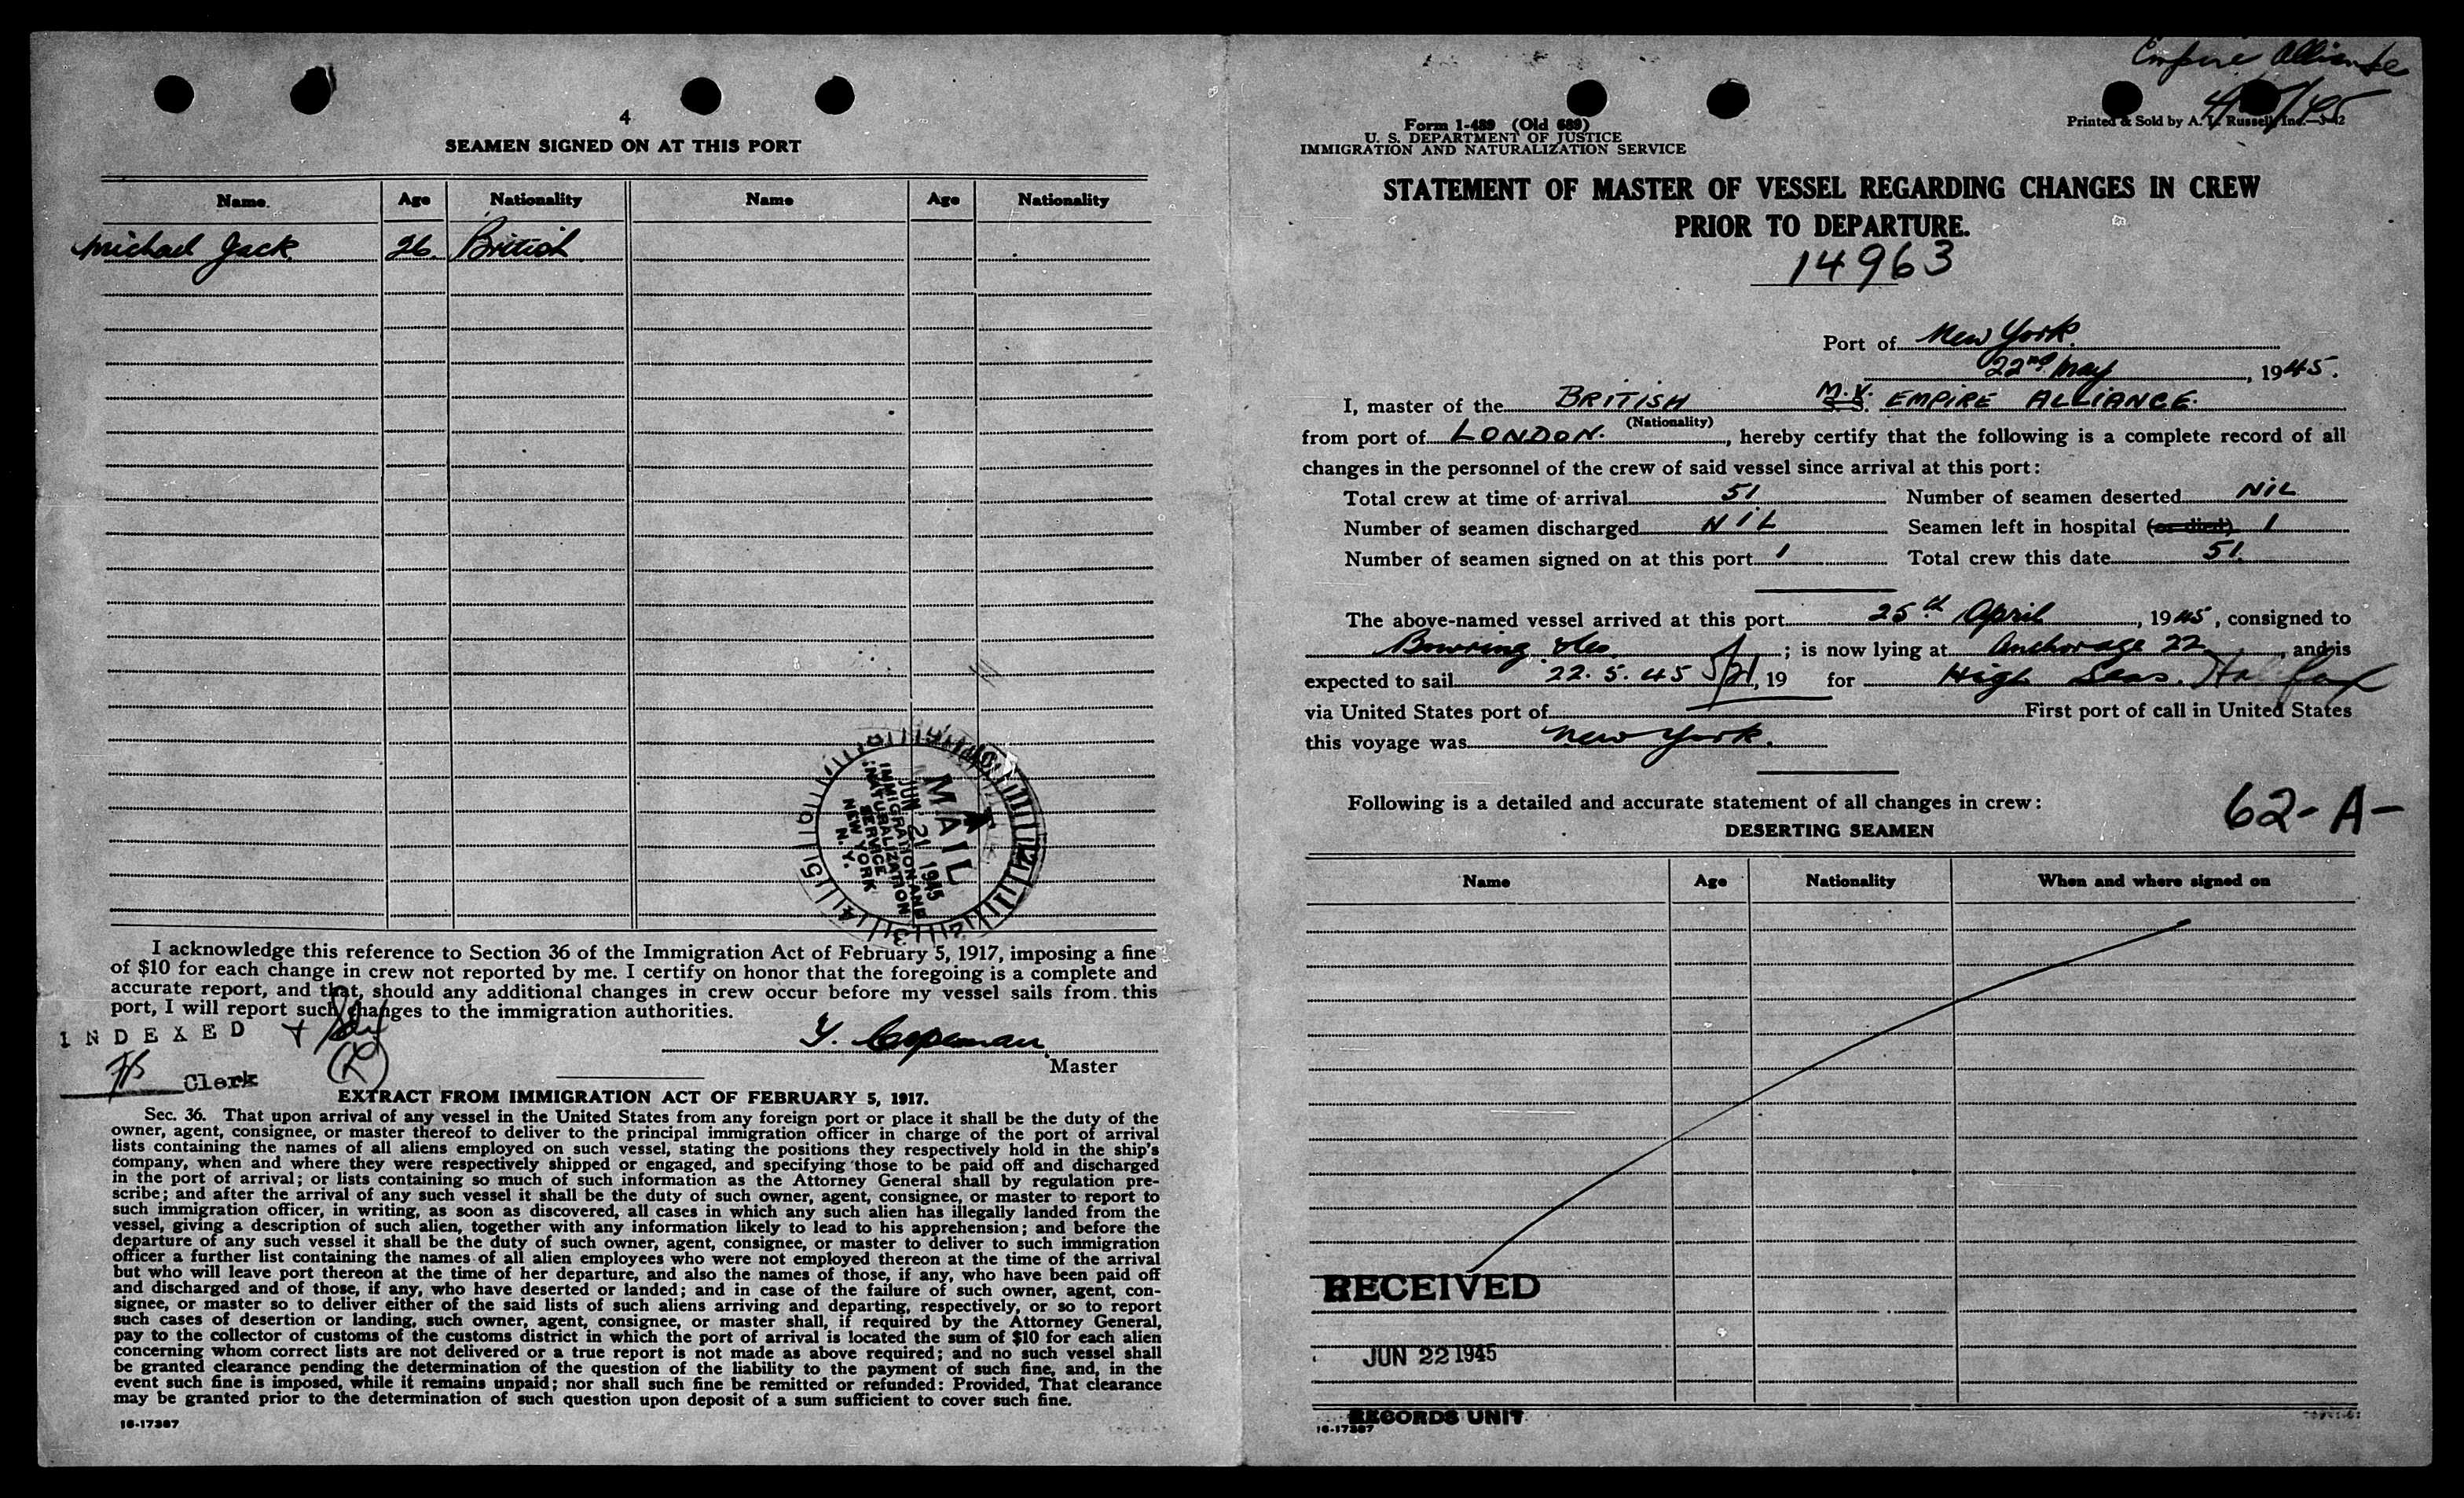 4
SEAMEN SIGNED ON AT THIS PORT
Name Age Nationality Name Age Nationality
Michael Jack 26 British
MAIL
JUN 21 1945
IMMIGRATION AND
NATURALIZATION
SERVICE
NEW YORK
N. Y.
I acknowledge this reference to Section 36 of the Immigration Act of February 5, 1917, imposing a fine
of $10 for each change in crew not reported by me. I certify on honor that the foregoing is a complete and
accurate report, and that, should any additional changes in crew occur before my vessel sails from this
port, I will report such changes to the immigration authorities.
INDEXED
Clerk
Copeman
Master
EXTRACT FROM IMMIGRATION ACT OF FEBRUARY 5, 1917.
Sec. 36. That upon arrival of any vessel in the United States from any foreign port or place it shall be the duty of the
owner, agent, consignee, or master thereof to deliver to the principal immigration officer in charge of the port of arrival
lists containing the names of all aliens employed on such vessel, stating the positions they respectively hold in the ship's
company, when and where they were respectively shipped or engaged, and specifying those to be paid off and discharged
in the port of arrival; or lists containing so much of such information as the Attorney General shall by regulation pre-
scribe; and after the arrival of any such vessel it shall be the duty of such owner, agent, consignee, or master to report to
such immigration officer, in writing, as soon as discovered, all cases in which any such alien has illegally landed from the
vessel, giving a description of such alien, together with any information likely to lead to his apprehension; and before the
departure of any such vessel it shall be the duty of such owner, agent, consignee, or master to deliver to such immigration
officer a further list containing the names of all alien employees who were not employed thereon at the time of the arrival
but who will leave port thereon at the time of her departure, and also the names of those, if any, who have been paid off
and discharged and of those, if any, who have deserted or landed; and in case of the failure of such owner, agent, con-
signee, or master so to deliver either of the said lists of such aliens arriving and departing, respectively, or so to report
such cases of desertion or landing, such owner, agent, consignee, or master shall, if required by the Attorney General,
pay to the collector of customs of the customs district in which the port of arrival is located the sum of $10 for each alien
concerning whom correct lists are not delivered or a true report is not made as above required; and no such vessel shall
be granted clearance pending the determination of the question of the liability to the payment of such fine, and, in the
event such fine is imposed, while it remains unpaid; nor shall such fine be remitted or refunded: Provided, That clearance
may be granted prior to the determination of such question upon deposit of a sum sufficient to cover such fine.
16-17367
Empire Alliance
Form 1-489 (Old 689)
U. S. DEPARTMENT OF JUSTICE
IMMIGRATION AND NATURALIZATION SERVICE
Printed & Sold by A. L. Russell, Inc.—3-42
STATEMENT OF MASTER OF VESSEL REGARDING CHANGES IN CREW
PRIOR TO DEPARTURE.
14963
Port of New York.
22nd May, 1945.
I, master of the BRITISH M.V. S.S. EMPIRE ALLIANCE.
(Nationality)
from port of LONDON., hereby certify that the following is a complete record of all
changes in the personnel of the crew of said vessel since arrival at this port:
Total crew at time of arrival 51 Number of seamen deserted NIL
Number of seamen discharged NIL Seamen left in hospital (or died) 1
Number of seamen signed on at this port 1 Total crew this date 51.
The above-named vessel arrived at this port 25th April, 1945, consigned to
Bowring &Co.; is now lying at Anchorage 22, and is
expected to sail 22.5.45 5/21, 19 for High Seas. Halifax
via United States port of First port of call in United States
this voyage was New York.
Following is a detailed and accurate statement of all changes in crew:
62-A-
DESERTING SEAMEN
Name Age Nationality When and where signed on
RECEIVED
JUN 22 1945
RECORDS UNIT
16-17367